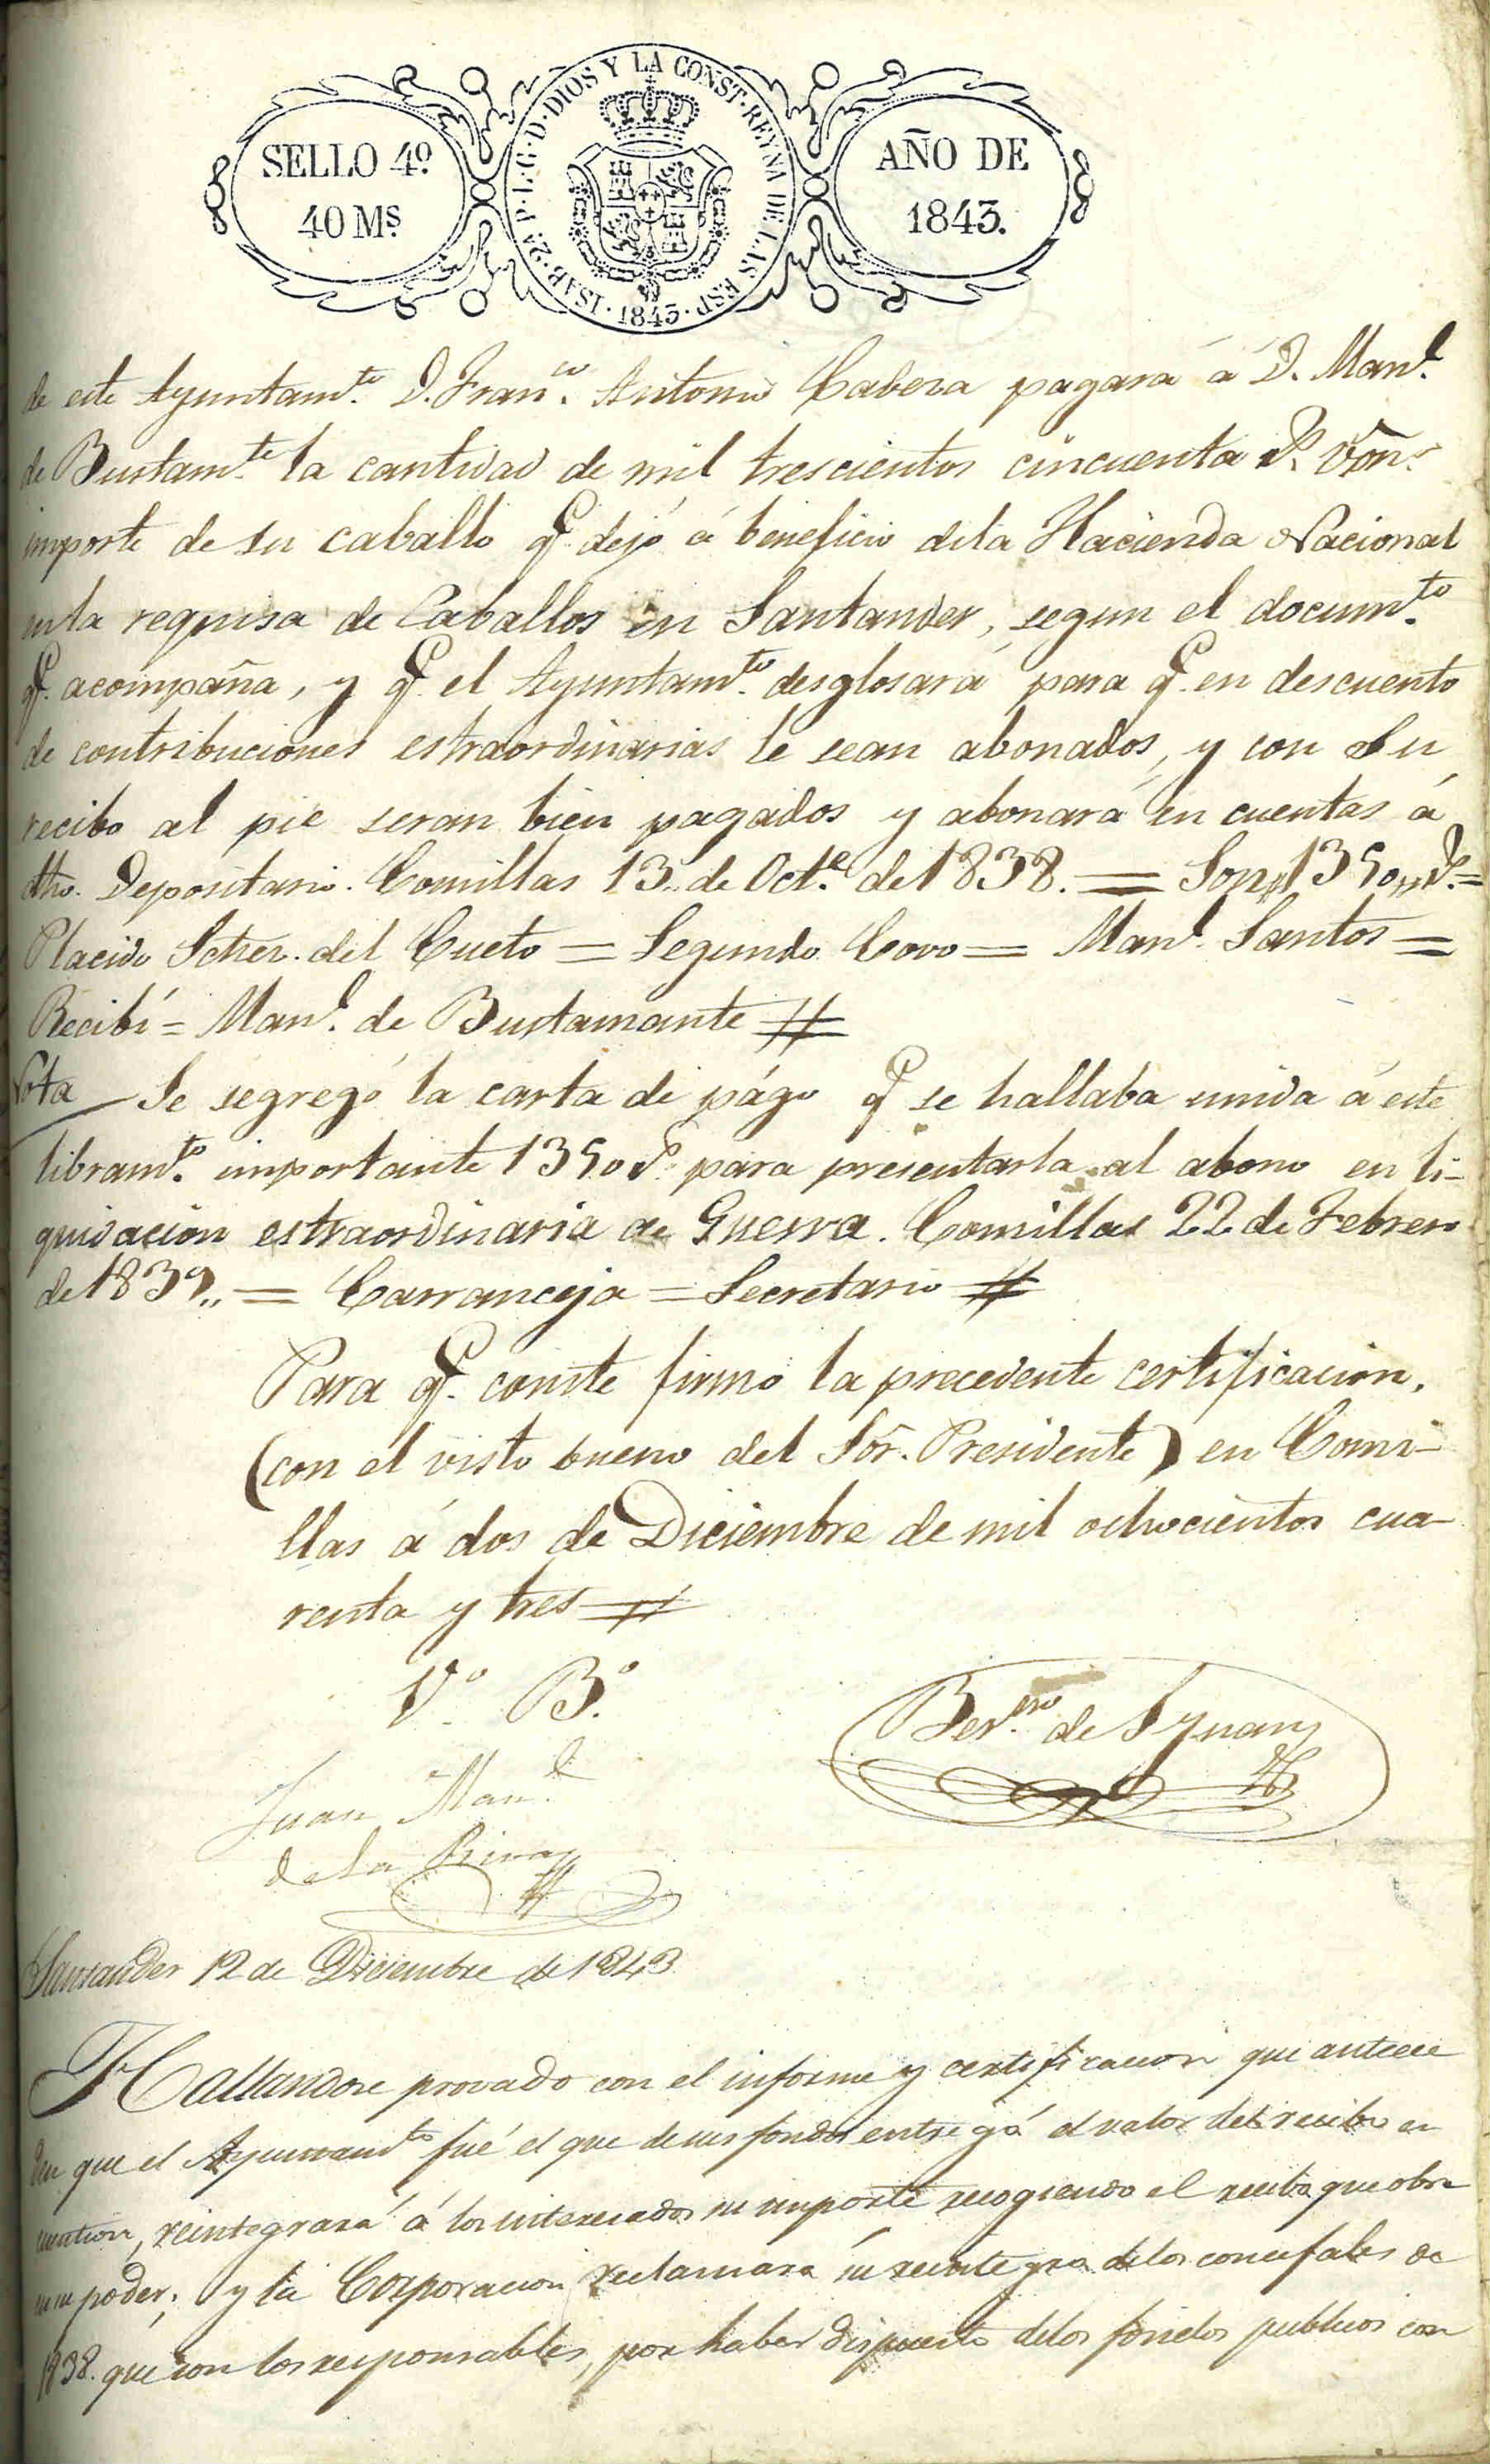 SELLO 4º
40 Mˢ.
ISAB. 2ª P. L. G. D. DIOS Y LA CONST. REYNA DE LAS ESP. 1843.
AÑO DE
1843.
de este Ayuntamᵗᵒ. D. Franᶜᵒ. Antonio Cabeza pagará á D. Manˡ.
de Bustamᵗᵉ. la cantidad de mil trescientos cincuenta rˢ. vōn.
importe de su caballo q̃. dejó á beneficio dela Hacienda Nacional
enla requisa de Caballos en Santander, segun el documᵗᵒ.
q̃. acompaña, y q̃. el Ayuntamᵗᵒ. desglosará para q̃. en descuento
de contribuciones estraordinarias le sean abonados, y con su
recibo al pie seran bien pagados y abonará en cuentas á
dho. Depositario. Comillas 13,, de Octᵉ. de 1838. = Son,, 1350,, rˢ. =
Placido Schez. del Cueto = Segundo Covo = Manˡ. Santos =
Recibí = Manˡ. de Bustamante #
Nota Se segregó la carta de págo q̃ se hallaba unida á este
libramᵗᵒ. importante 1350 rˢ. para presentarla al abono en li-
quidacion estraordinaria de Guerra. Comillas 22 de Febrero
de 1839,, = Carranceja = Secretario #
Para q̃. conste firmo la precedente certificacion,
(con el visto bueno del Sōr. Presidente) en Comi-
llas á dos de Diciembre de mil ochocientos cua-
renta y tres #
Vº. Bº.
de
Juan Manˡ.
dela Riva
Santander 12 de Diciembre de 1843
Hallandose provado con el informe y certificacion que antecede
que el Ayuntamᵗᵒ fué el que de sus fondos entregó el valor del recibo en
cuestion, reintegrará á los interesados su importe recogiendo el recibo que obra
en su poder; y la Corporacion reclamará su reintegro delos concejales de
1838. que son los responsables, por haber dispuesto delos fondos publicos con